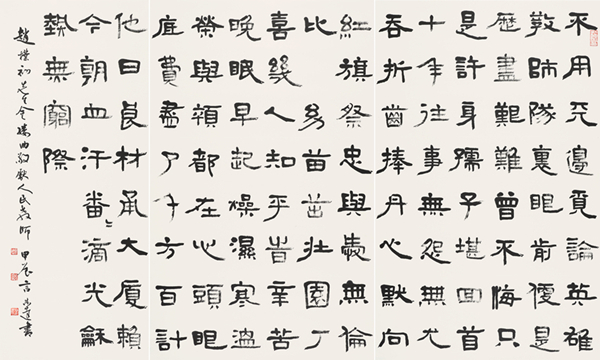 不用天邊覓論英雄
教師隊裏眼前便是
歷盡艱難曾不悔只
是許身孺子堪回首
十年往事無怨無尤
吞折齒捧丹心默向
紅旗祭忠與愛無倫
比 幼苗茁壯園丁
喜幾人知平昔辛苦
晚眠早起燥濕寒溫
榮與顇都在心頭眼
底費盡了千方百計
他日良材承大廈賴
今朝血汗番〻滴光龢
熱無窮際
趙樸初先生金縷曲敬獻人民教師 甲辰 書